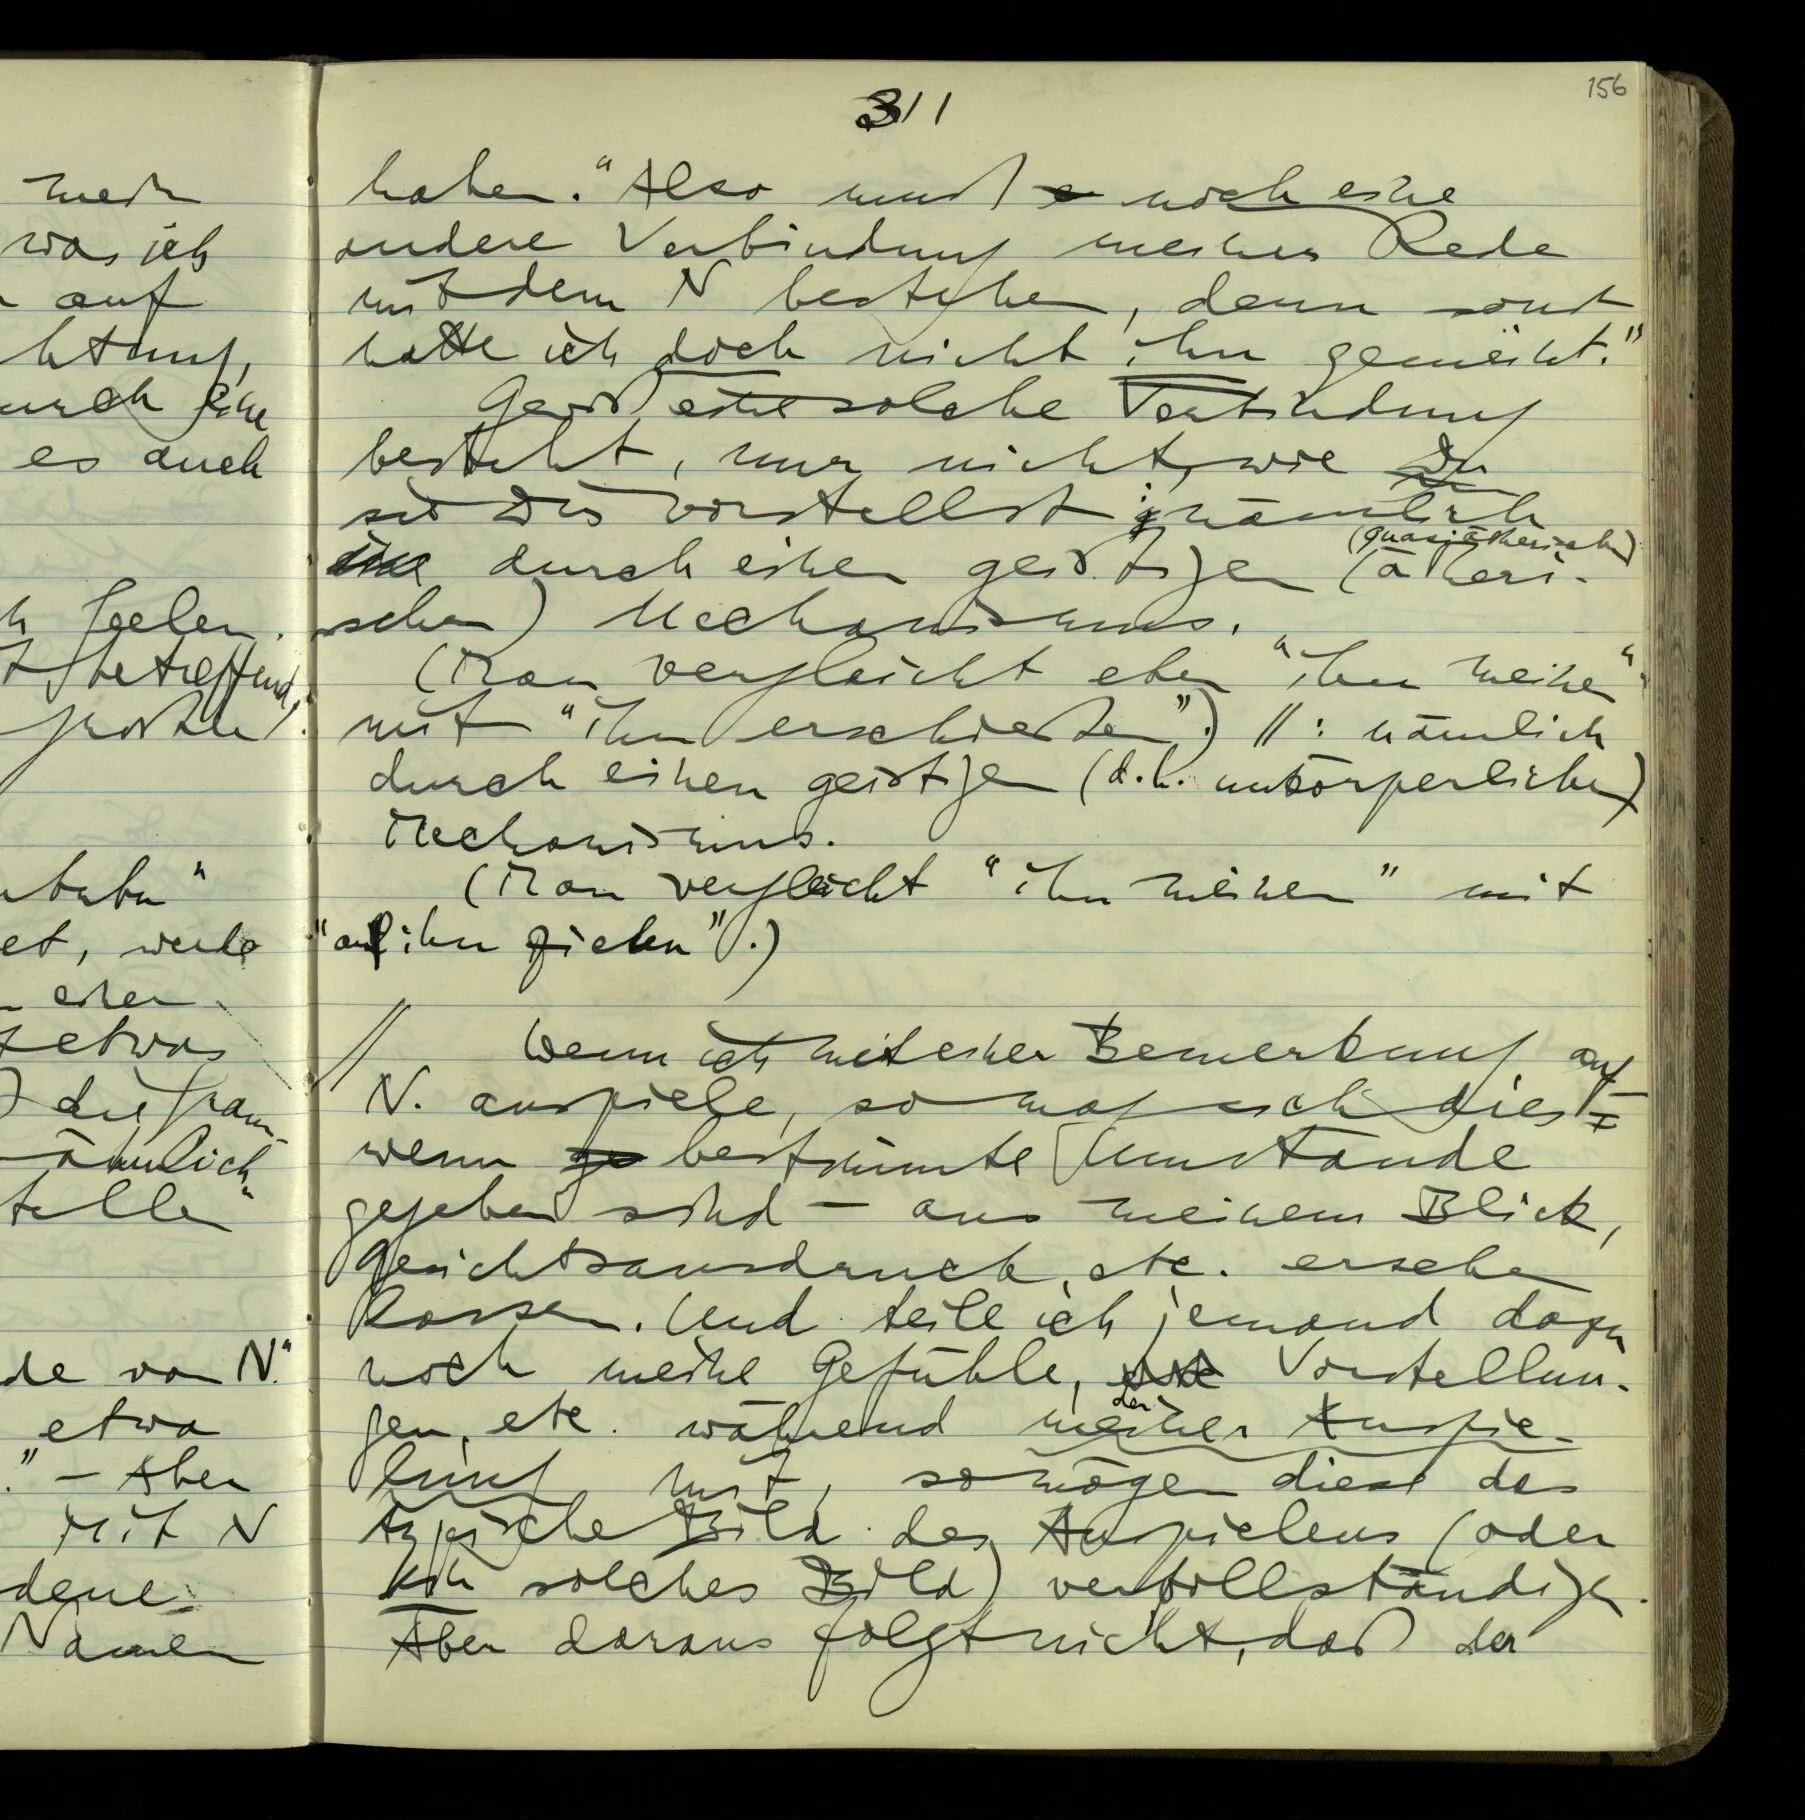 mein
was ich
auf
htung,
urch eine
es auch
Seelen.
betreffend,
et, werde
einen
etwas
die gram-
ähnlich
telle
de von N."
etwa
." – Aber
mit N
dene
Namen
156
311
haben." Also muß noch eine
andere Verbindung meiner Rede
mit dem N bestehen, denn sonst
hätte ich doch nicht ihn gemeint."
Gewiß eine solche Verbindung
besteht, nur nicht, wie Du
sie Dir vorstellst; nämlich
(quasiätherischen)
durch einen geistigen (ätheri-
schen) Mechanismus.
(Man vergleicht eben "ihn meinen"
mit "ihn erschießen".) //: nämlich
durch einen geistigen (d.h. unkörperlichen)
Mechanismus.
(Man vergleicht "ihn meinen" mit
"auf ihn zielen".)
// Wenn ich mit einer Bemerkung auf
N. anspiele, so mag sich dies –
wenn bestimmte Umstände
gegeben sind – aus meinem Blick,
Gesichtsausdruck, etc. ersehen
lassen. Und teile ich jemand dazu
noch meine Gefühle, Vorstellun-
der
gen, etc. während meiner Anspie-
lung mit, so mögen diese das
typische Bild des Anspielens (oder
ein solches Bild) vervollständigen.
Aber daraus folgt nicht, daß der